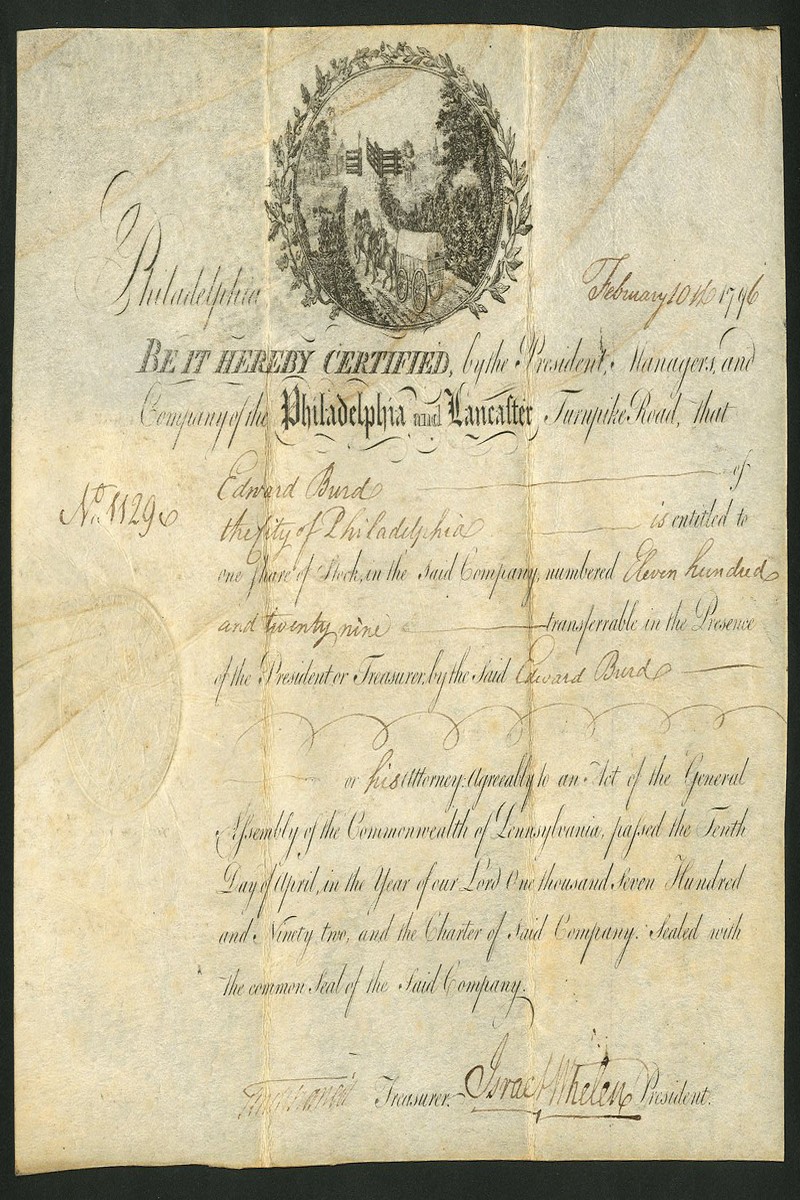 Philadelphia February 10th 1796
BE IT HEREBY CERTIFIED, by the President, Managers, and
Company of the Philadelphia and Lancaster Turnpike Road, that
Edward Burd of
No. 1129
the City of Philadelphia is entitled to
one Share of Stock, in the Said Company, numbered Eleven hundred
and twenty nine transferrable in the Presence
of the President or Treasurer, by the Said Edward Burd
or his Attorney: Agreeably to an Act of the General
Assembly of the Commonwealth of Pennsylvania, passed the Tenth
Day of April, in the Year of our Lord One thousand Seven Hundred
and Ninety two, and the Charter of Said Company. Sealed with
the common Seal of the Said Company.
Treasurer. Israel Whelen President.